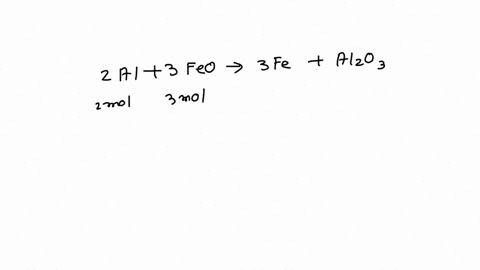 2 Al + 3 FeO → 3 Fe + Al₂O₃
2 mol 3 mol